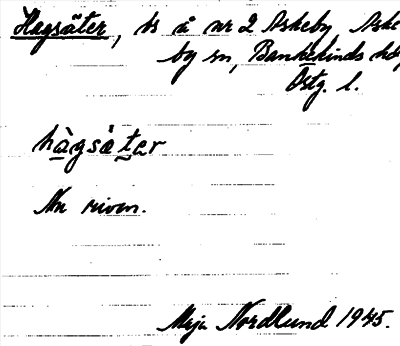 Hagsäter, ts å nr 2 Askeby Aske
by sn, Bankekinds hd,
Östg. l.
hàgsä̀tar
Nu riven.
Maja Nordlund 1945.